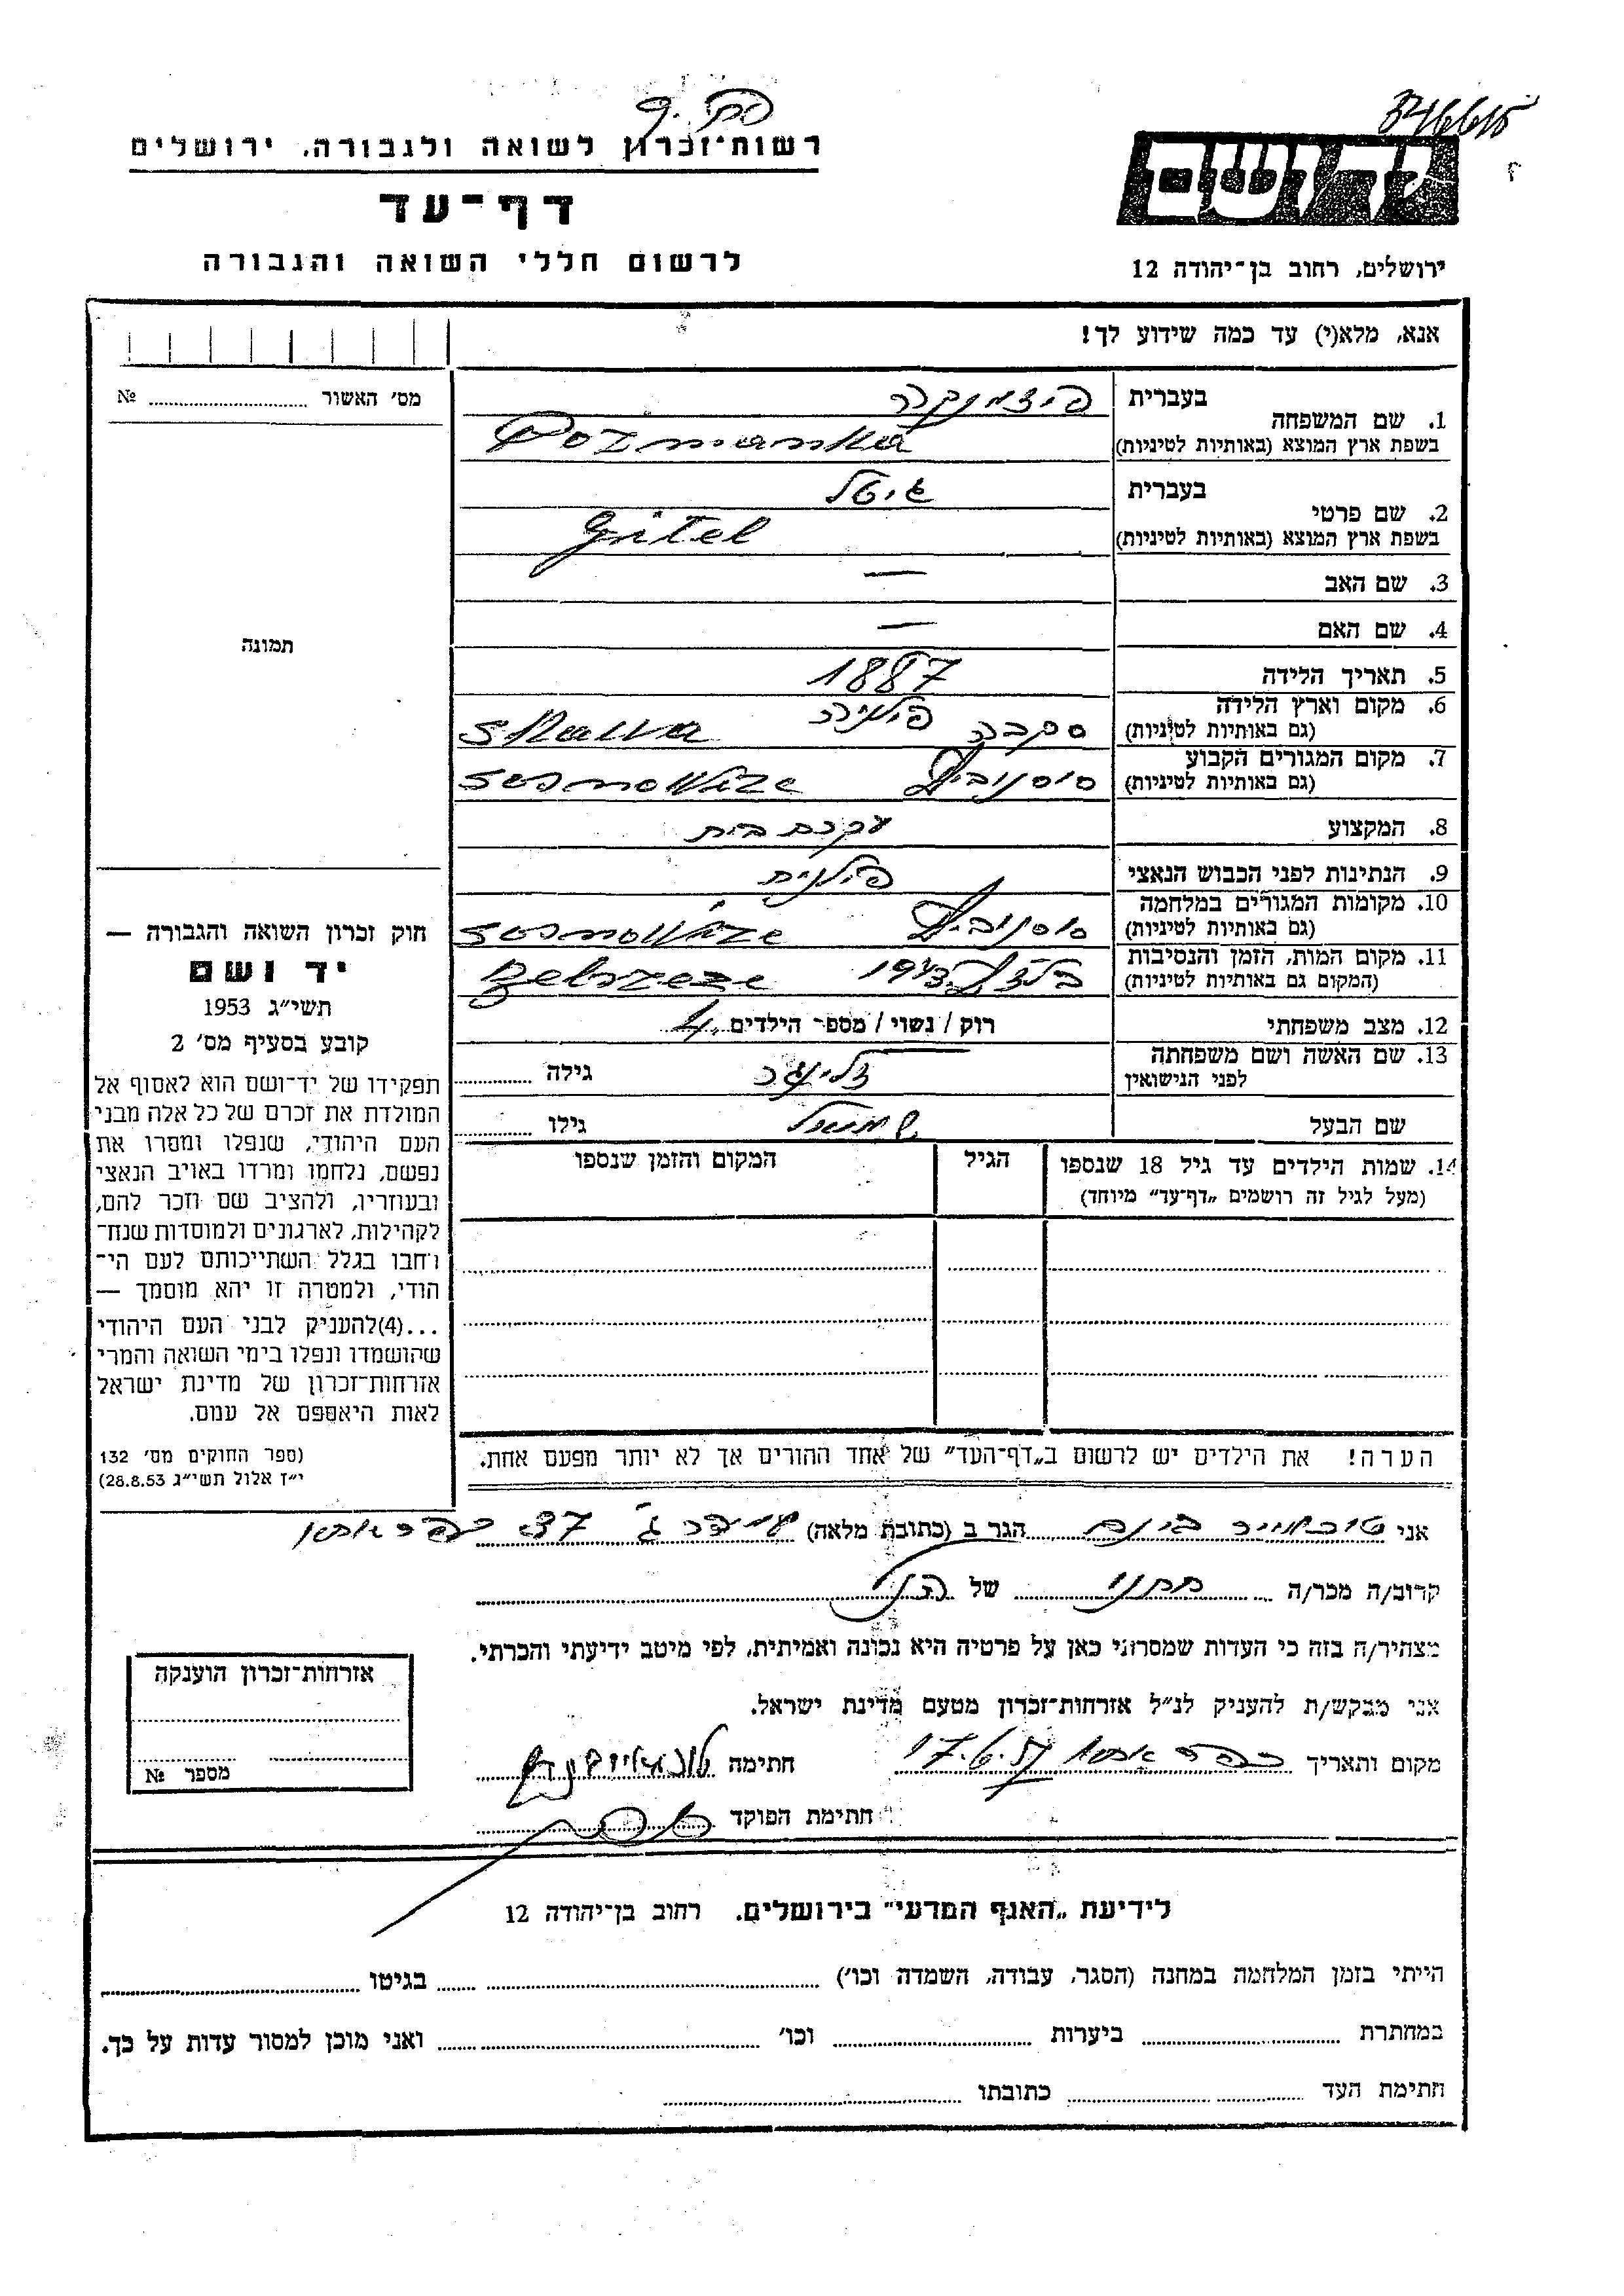 346615
יד ושם
רשות־זכרון לשואה ולגבורה, ירושלים
דף־עד
לרשום חללי השואה והגבורה
ירושלים, רחוב בן־יהודה 12
אנא, מלא(י) עד כמה שידוע לך!
מס׳ האשור № 
1. שם המשפחה
בעברית
בשפת ארץ המוצא (באותיות לטיניות) Pozmanka
2. שם פרטי
בעברית גיטל
בשפת ארץ המוצא (באותיות לטיניות) Gitel
3. שם האב —
4. שם האם —
תמונה
5. תאריך הלידה 1887
6. מקום וארץ הלידה
(גם באותיות לטיניות) סקבה פולניה Skawa
7. מקום המגורים הקבוע
(גם באותיות לטיניות) סוסנוביץ Sosnowitze
8. המקצוע עקרת בית
9. הנתינות לפני הכבוש הנאצי פולנית
10. מקומות המגורים במלחמה
(גם באותיות לטיניות) סוסנוביץ Sosnowitze
11. מקום המות, הזמן והנסיבות
(המקום גם באותיות לטיניות) בלזץ 1943 Belzeze
12. מצב משפחתי רוק / נשוי / מספר הילדים 4
13. שם האשה ושם משפחתה
לפני הנישואין זלינגר גילה
שם הבעל שמואל גילו
14. שמות הילדים עד גיל 18 שנספו
(מעל לגיל זה רושמים „דף־עד” מיוחד)
הגיל
המקום והזמן שנספו
חוק זכרון השואה והגבורה —
יד ושם
תשי״ג 1953
קובע בסעיף מס׳ 2
תפקידו של יד־ושם הוא לאסוף אל
המולדת את זכרם של כל אלה מבני
העם היהודי, שנפלו ומסרו את
נפשם, נלחמו ומרדו באויב הנאצי
ובעוזריו, ולהציב שם וזכר להם,
לקהילות, לארגונים ולמוסדות שנח־
רחבו בגלל השתייכותם לעם הי־
הודי, ולמטרה זו יהא מוסמך —
...(4)להעניק לבני העם היהודי
שהושמדו ונפלו בימי השואה והמרי
אזרחות־זכרון של מדינת ישראל
לאות היאספם אל עמם.
(ספר החוקים מס׳ 132
י״ז אלול תשי״ג 28.8.53)
הערה! את הילדים יש לרשום ב„דף־העד” של אחד ההורים אך לא יותר מפעם אחת.
אני הגר ב (כתובת מלאה) 37 כפר אתא
קרוב/ה מכר/ה של
מצהיר/ה בזה כי העדות שמסרתי כאן על פרטיה היא נכונה ואמיתית, לפי מיטב ידיעתי והכרתי.
אני מבקש/ת להעניק לנ״ל אזרחות־זכרון מטעם מדינת ישראל.
מקום ותאריך כפר אתא 17.6.57 חתימה
חתימת הפוקד
אזרחות־זכרון הוענקה
מספר №
לידיעת „האגף המדעי” בירושלים. רחוב בן־יהודה 12
הייתי בזמן המלחמה במחנה (הסגר, עבודה, השמדה וכו׳) בגיטו
במחתרת ביערות וכו׳ ואני מוכן למסור עדות על כך.
חתימת העד כתובתו